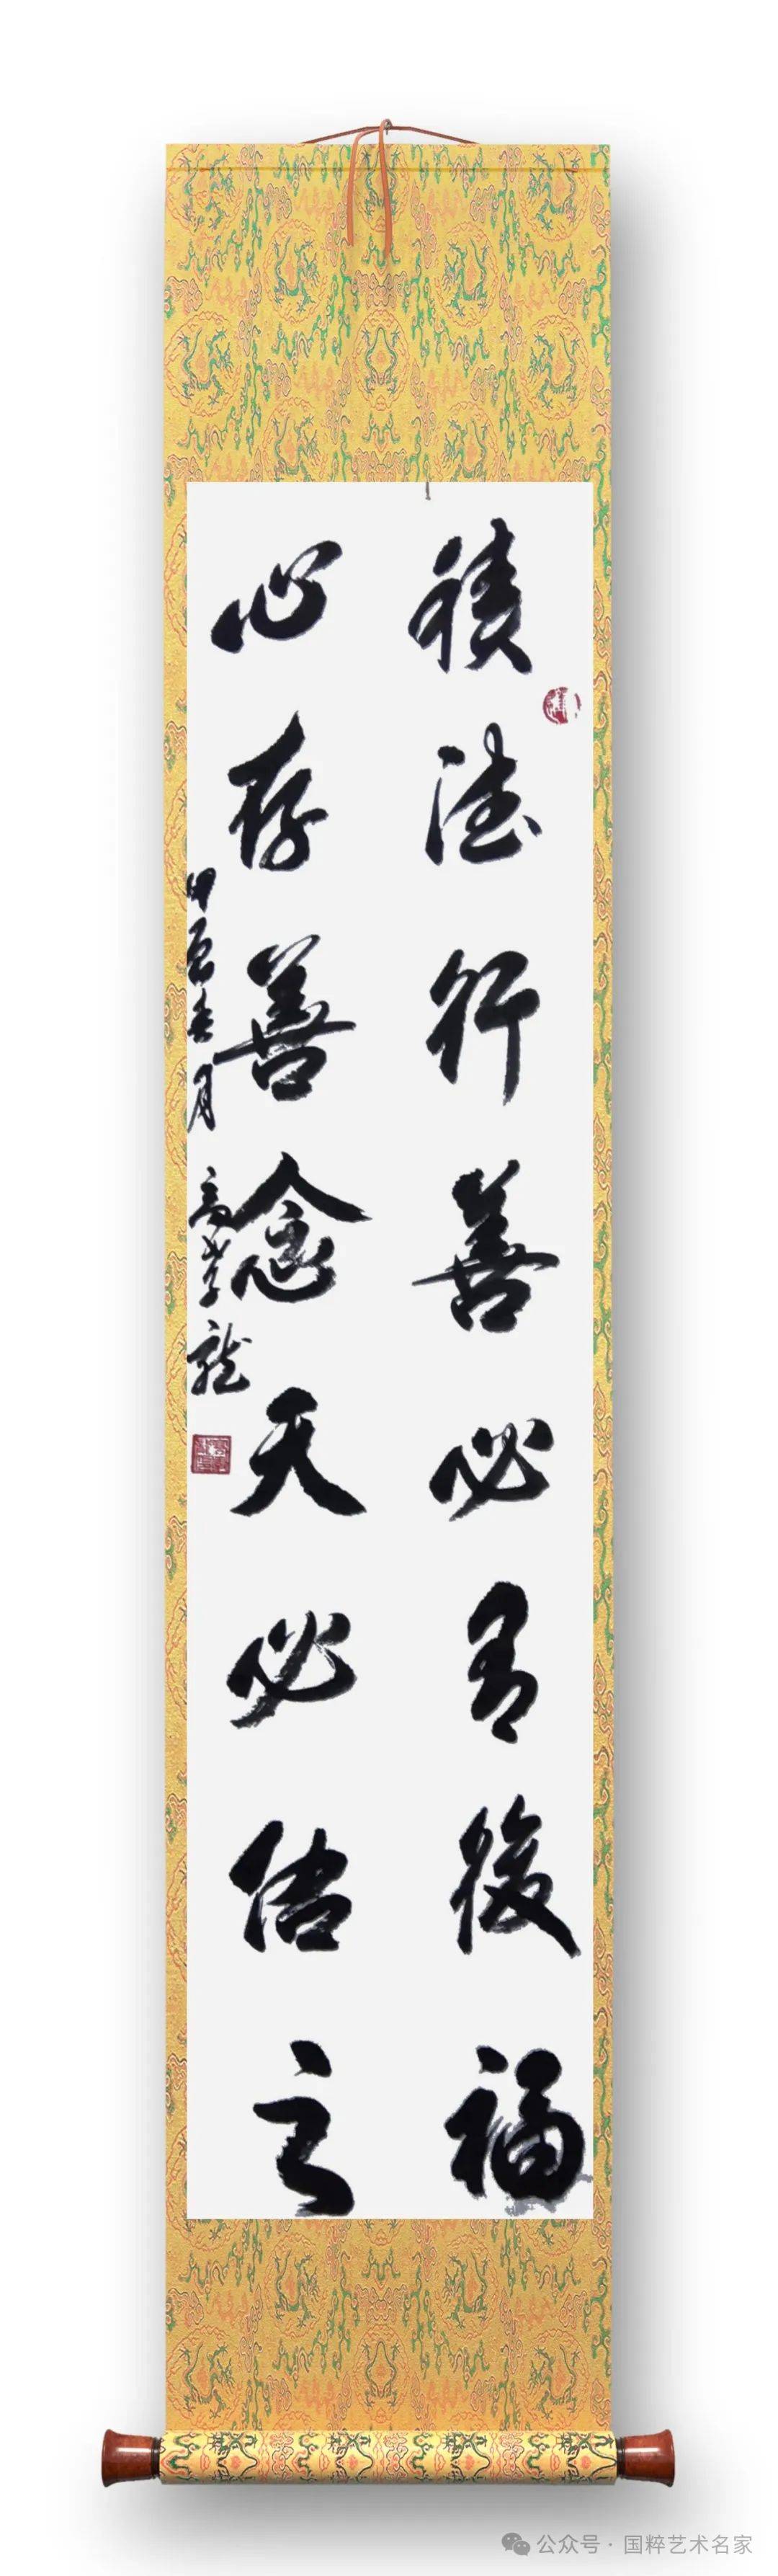 積德行善必有後福
心存善念天必佑之
甲辰冬月 高孝龍
公众号·国粹艺术名家